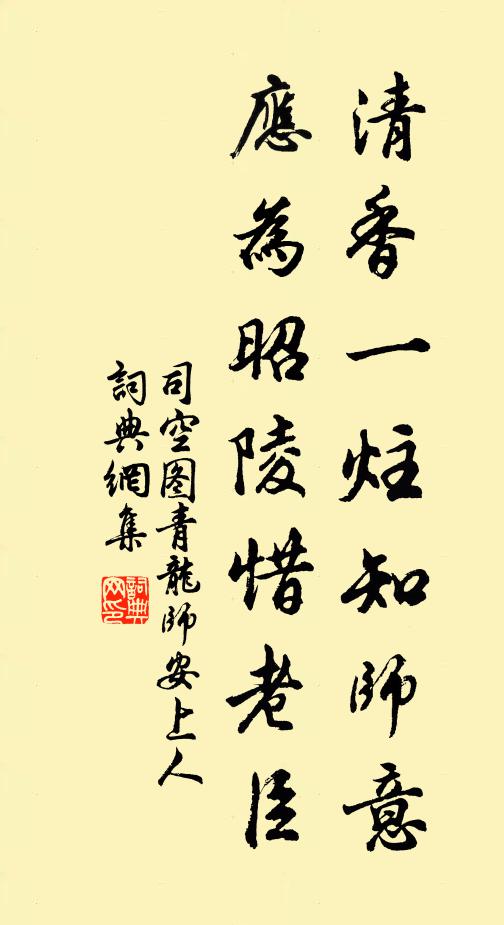 清香一炷知師意
應為昭陵惜老臣
司空图青龍師安上人
詞典網集
詞典網印